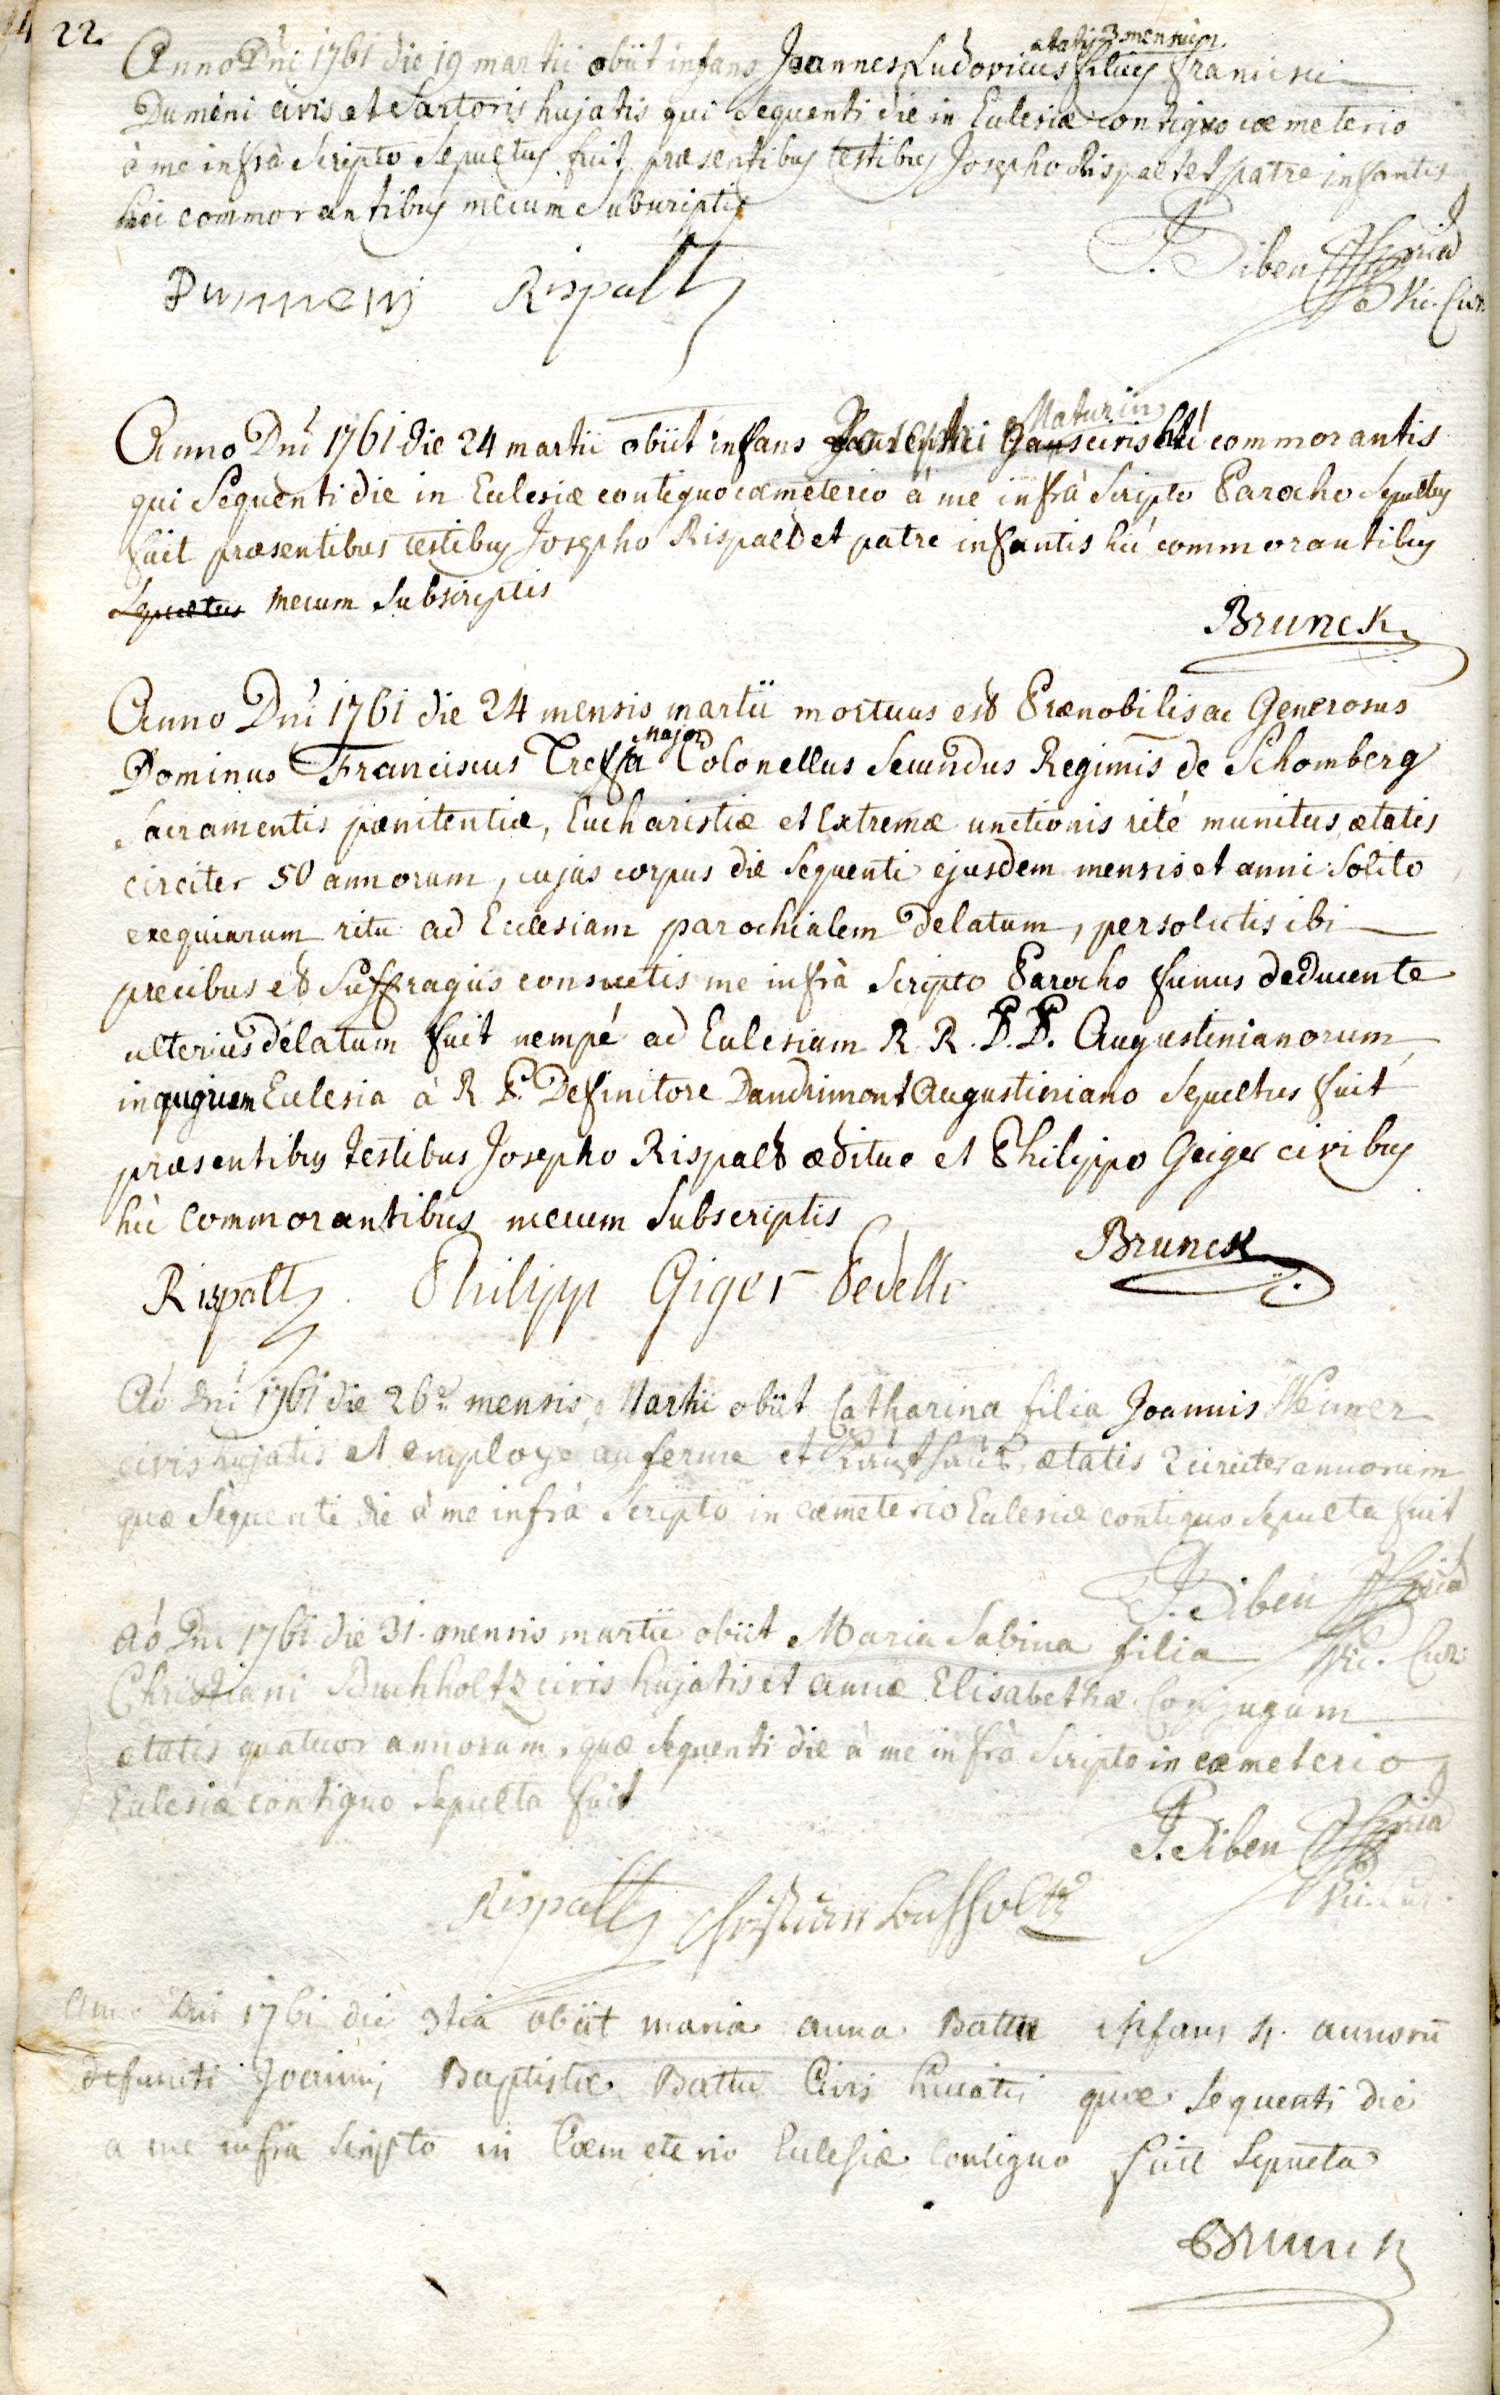 22.
ætatis 3 mensium.
Anno Dni 1761 die 19 martii obiit infans Joannes Ludovicus filius Francisci
Dumèni civis et Sartoris hujatis qui sequenti die in Ecclesiæ contiguo cæmeterio
à me infrà Scripto Sepultus fuit, præsentibus testibus Josepho Rispaldet patre infantis
hic commorantibus mecum Subscriptis
Dummeni Rispalt
J. Siben
Vic. Cur.
Maturin
Anno Dni 1761 die 24 martii obiit infans Josephi civis hic commorantis
qui Sequenti die in Ecclesiæ contiguo cæmeterio à me infrà Scripto Parocho Sepultus
fuit præsentibus testibus Josepho Rispald et patre infantis hic commorantibus
Sepultus mecum Subscriptis
Brunck
Anno Dni 1761 die 24 mensis martii mortuus est Prænobilis ac Generosus
Major
Dominus Franciscus Colonellus Secundus Regimis de Schomberg
Sacramentis pœnitentiæ, Eucharistiæ et Extremæ unctionis ritè munitus, ætatis
circiter 50 annorum, cujus corpus die Sequenti ejusdem mensis et anni Solito
exequiarum ritu ad Ecclesiam parochialem delatum, persolutis ibi
precibus et Suffragiis consuetis me infrà Scripto Parocho funus deducente
ulterius delatum fuit nempé ad Ecclesiam R. R. P.P. Augustinianorum
in Ecclesia à R. P. Definitore Dandrimont Augustiniano Sepultus fuit
præsentibus testibus Josepho Rispald ædituo et Philippo Geiger civibus
hic commorantibus mecum Subscriptis
Brunck
Rispalt Philipp Giger Pedelle
Aó Dni 1761 die 26ª mensis Martii obiit Catharina filia Joannis
civis hujatis et employe au ferme et ætatis 2 circiter annorum
quæ Sequenti die à me infrà Scripto in cæmeterio Ecclesiæ contiguo Sepulta fuit
J. Siben
Vic. Cur:
Aó Dni 1761 die 31. mensis martii obiit Maria Sabina filia
Christiani Buchholtz civis hujatis et annæ Elisabethæ Conjugum
ætatis quatuor annorum, quæ Sequenti die à me infrà Scripto in cæmeterio
Ecclesiæ contiguo Sepulta fuit
J. Siben
Vic. Cur.
Rispalt Christian
Anno Dni 1761 die obiit maria anna Battu infans 4. annorū
defuncti Joannis Baptistæ Battu Civis quæ Sequenti die
a me infra Scripto in Cæmeterio Ecclesiæ Contiguo fuit Sepulta
Brunck